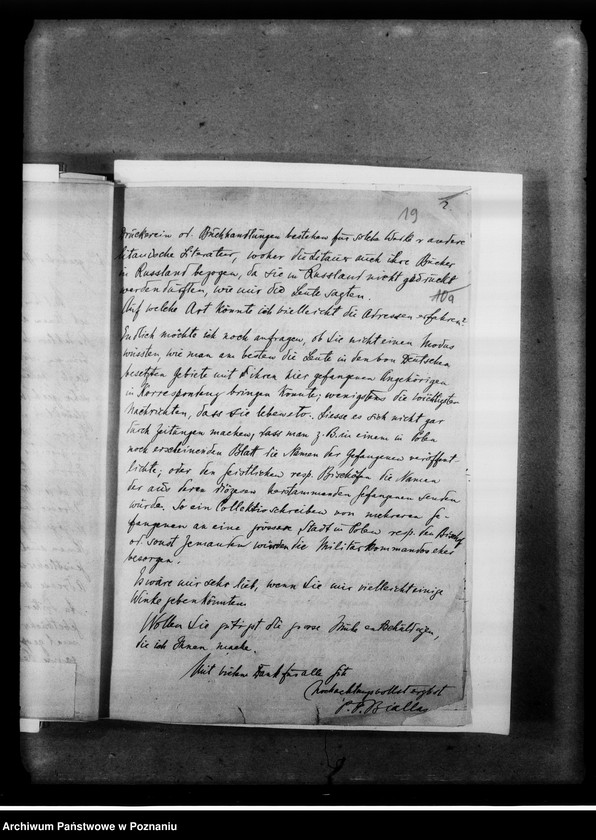 19
2.
Druckereien od. Buchhandlungen bestehen für solche Werke u andere
litauische Literatur, woher die Litauer auch ihre Bücher
in Russland bezogen, da sie in Russland nicht gedruckt
werden durften, wie mir die Leute sagten.
10a
Auf welche Art könnte ich vielleicht die Adressen erfahren?
Endlich möchte ich noch anfragen, ob Sie nicht einen Modus
wüssten, wie man am besten die Leute in den von Deutschen
besetzten Gebiete mit ihren hier gefangenen Angehörigen
in Korrespondenz bringen könnte; wenigstens die wichtigsten
Nachrichten, dass sie leben etc. Liesse es sich nicht gar
durch Zeitungen machen, dass man z. B. in einem in Polen
noch erscheinenden Blatt die Namen der Gefangenen veröffent-
lichte; oder den Geistlichen resp. Bischöfen die Namen
der aus deren Diözesen herstammenden Gefangenen senden
würde. So ein Collectivschreiben von mehreren Ge-
fangenen an eine grössere Stadt in Polen resp. den Bischof
od. sonst Jemanden würden die Militärkommandos eher
besorgen.
Es wäre mir sehr lieb, wenn Sie mir vielleicht einige
Winke geben könnten.
Wollen Sie gütigst die grosse Mühe entschuldigen,
die ich Ihnen mache.
Mit vielem Dank für alle Güte
hochachtungsvollst ergbst
P. P. Biallas
Archiwum Państwowe w Poznaniu